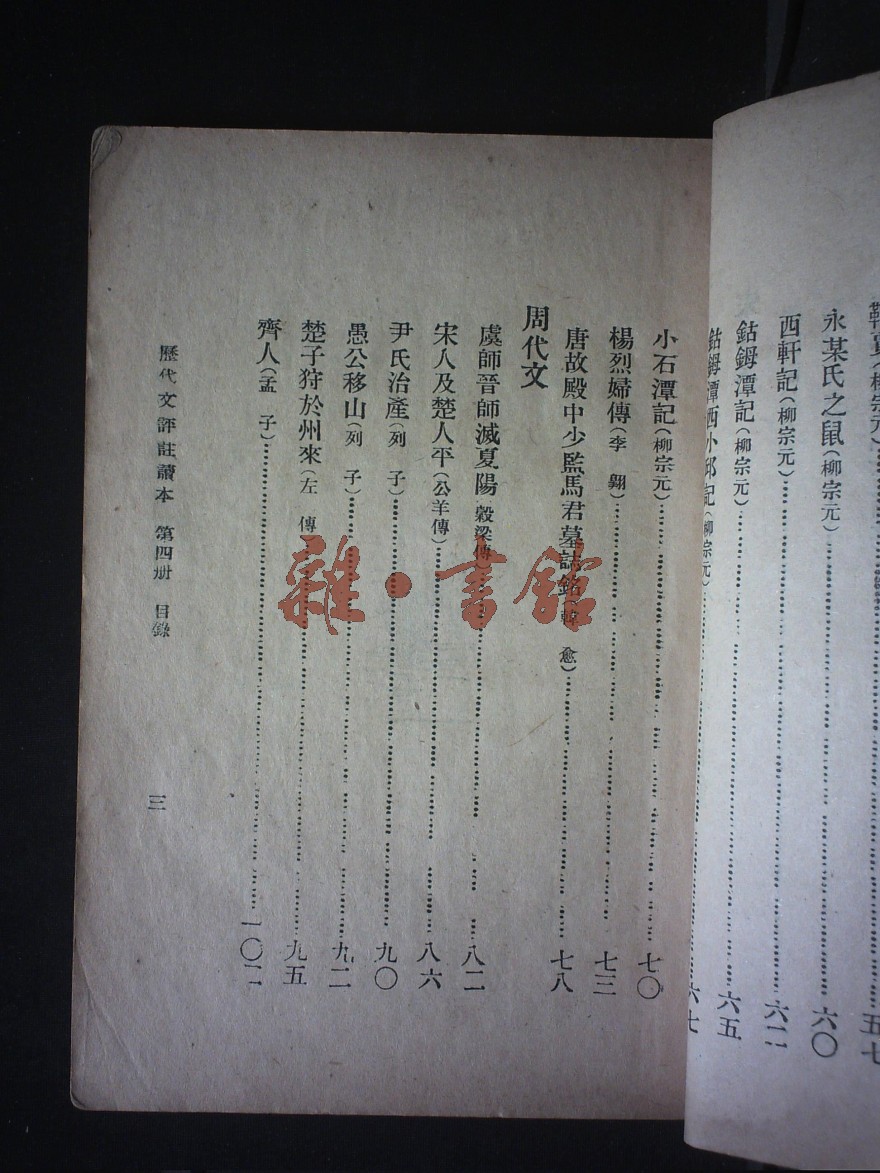 永某氏之鼠(柳宗元)……六〇
西軒記(柳宗元)……六二
鈷鉧潭記(柳宗元)……六五
鈷鉧潭西小邱記(柳宗元)……六七
小石潭記(柳宗元)……七〇
楊烈婦傳(李 翺)……七三
唐故殿中少監馬君墓誌銘(韓 愈)……七八
周代文
虞師晉師滅夏陽(穀梁傳)……八二
宋人及楚人平(公羊傳)……八六
尹氏治產(列 子)……九〇
愚公移山(列 子)……九二
楚子狩於州來(左 傳)……九五
齊人(孟 子)……一〇二
歷代文評註讀本 第四册 目錄
三
雜·書館